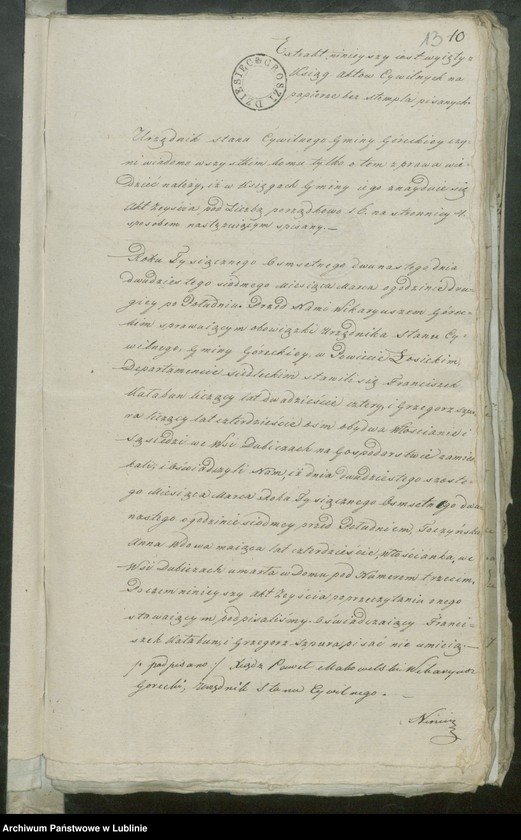 13 10
Extrakt ninieyszy iest wyięty z
Xsiąg Aktow Cywilnych na
papierze bez stempla pisanych
DZIESIĘĆ GROSZY
Urzędnik stanu Cywilnego Gminy Góreckiey czy-
ni wiadomo wszystkim komu tylko o tem z prawa wie-
dzieć należy, iż w Xsięgach Gminy iego znayduie się
Akt Zeyścia pod Liczbą porządkową 6. na stronnicy 4.
sposobem następuiącym spisany.—
Roku Tysiącznego Osmsetnego dwunastego dnia
dwudziestego siódmego Miesiąca Marca o godzinie dru-
giey po Południu. Przed Nami Wikaryuszem Górec-
kim sprawuiącym obowiązki Urzędnika Stanu Cy-
wilnego, Gminy Góreckiey, w Powiecie Łosickim
Departamencie Siedleckim stawili się Franciszek
Kałabun liczący lat dwadzieścia cztery, i Grzegorz Szpu-
ra liczący lat czterdzieści ośm obydwa Włościanie i
Sąsiedzi we Wsi Dubiczach na Gospodarstwie zamiesz-
kali; i Oświadczyli Nam, iż dnia dwudziestego szoste-
go Miesiąca Marca Roku Tysiącznego Osmsetnego dwu-
nastego o godzinie siódmey przed Południem,
Anna Wdowa maiąca lat czterdzieści, Włościanka, we
Wsi Dubiczach umarła w Domu pod Numerem trzecim.
Poczem ninieyszy Akt Zeyścia po przeczytaniu onego
stawaiącym, podpisaliśmy. Oświadczaiący Franci-
szek Kałabun, i Grzegorz Szpura, pisać nie umieią.—
/: podpisano :/ Xiądz Paweł Makowelski Wikaryusz
Gorecki, Urzędnik Stanu Cywilnego.—
Archiwum Państwowe w Lublinie